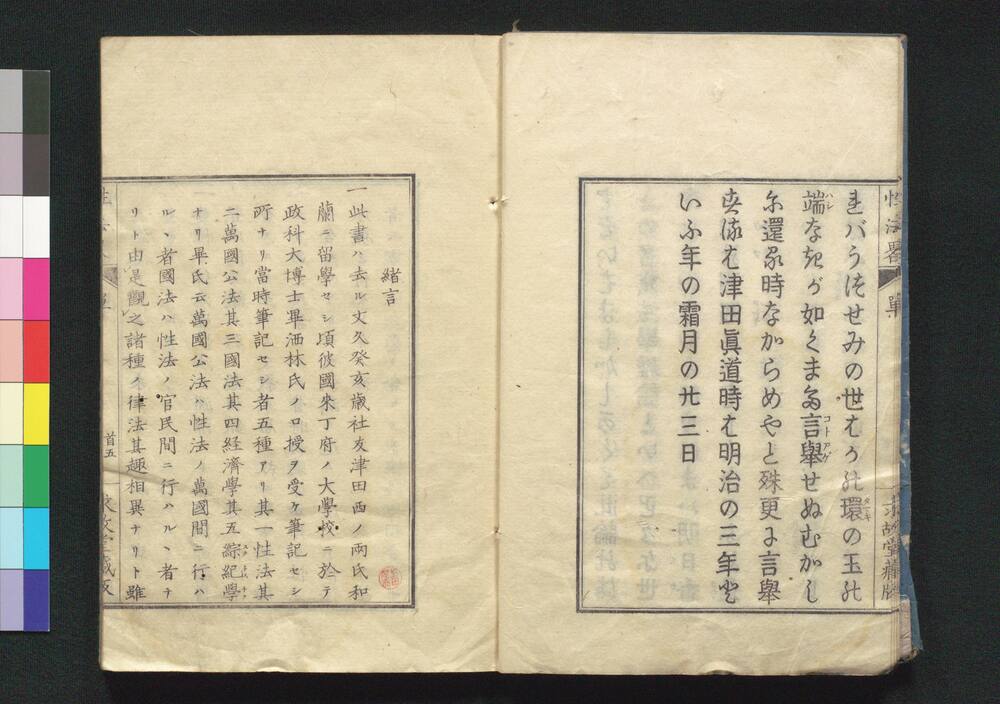 性法畧
單
求故堂藏版
まバうつせみの世はうれ環の玉れ
端なきが如くまる言舉せぬむかし
ハシ
コトアゲ
尓還る時なからめやと殊更に言舉
春流む津田眞道時は明治の三年と
いふ年の霜月の廿三日
緒言
一此書ハ去ル文久癸亥歳社友津田西ノ兩氏和
蘭ニ留學セシ頃彼國来丁府ノ大學校ニ於テ
政科大博士畢洒林氏ノ口授ヲ受ケ筆記セシ
所ナリ當時筆記セシ者五種アリ其一性法其
二萬國公法其三國法其四経濟學其五綜紀學
ナリ畢氏云萬國公法ハ性法ノ萬國間ニ行ハ
ルヽ者國法ハ性法ノ官民間ニ行ハルヽ者ナ
リト由是觀之諸種ノ律法其趣相異ナリト雖
首五
求故堂藏版